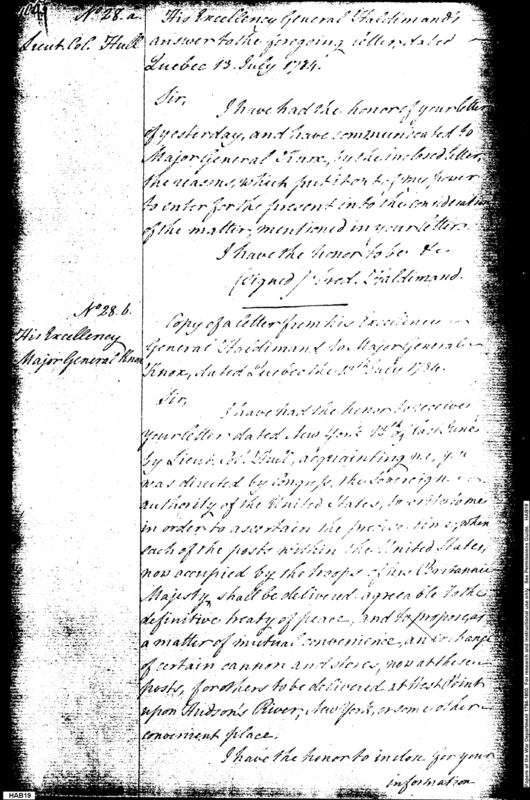 No 28. a.
Lieut. Col. Hull
His Excellency General Haldimand's
answer to the foregoing letter, dated
Quebec 13 July 1784.
Sir,
I have had the honor of your letter
of yesterday, and have communicated to
Major General Knox, by the inclosed letter,
the reasons, which put it out of my power
to enter for the present into the consideration
of the matter, mentioned in your letter.
I have the honor to be &c
(signed) Fred. Haldimand.
No 28. b.
His Excellency
Major General Knox
Copy of a letter from his Excellency
General Haldimand to Major General
Knox, dated Quebec the July 1784.
Sir,
I have had the honor to receive
your letter dated New York 13th of last June
by Lieut. Col. Hull, acquainting me, you
was directed by Congress, the Sovereign
authority of the United States, to write to me
in order to ascertain the precise time, when
each of the posts within the United States,
now occupied by the troops of his Britannic
Majesty, shall be delivered agreeable to the
definitive treaty of peace, and to propose, as
a matter of mutual convenience, an exchange
of certain cannon and stores, now at these
posts, for others to be delivered at West Point
upon Hudson's River, New York, or some other
convenient place.
I have the honor to inclose for your
information
HAB19